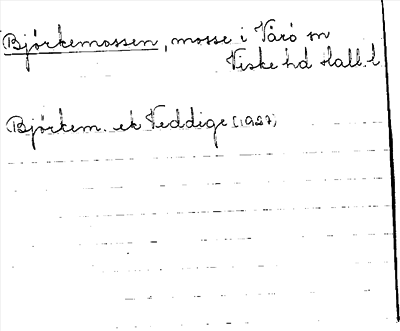 Björkemossen, mosse i Värö sn
Viske hd Hall. l
Björkem. ek Veddige (1927)